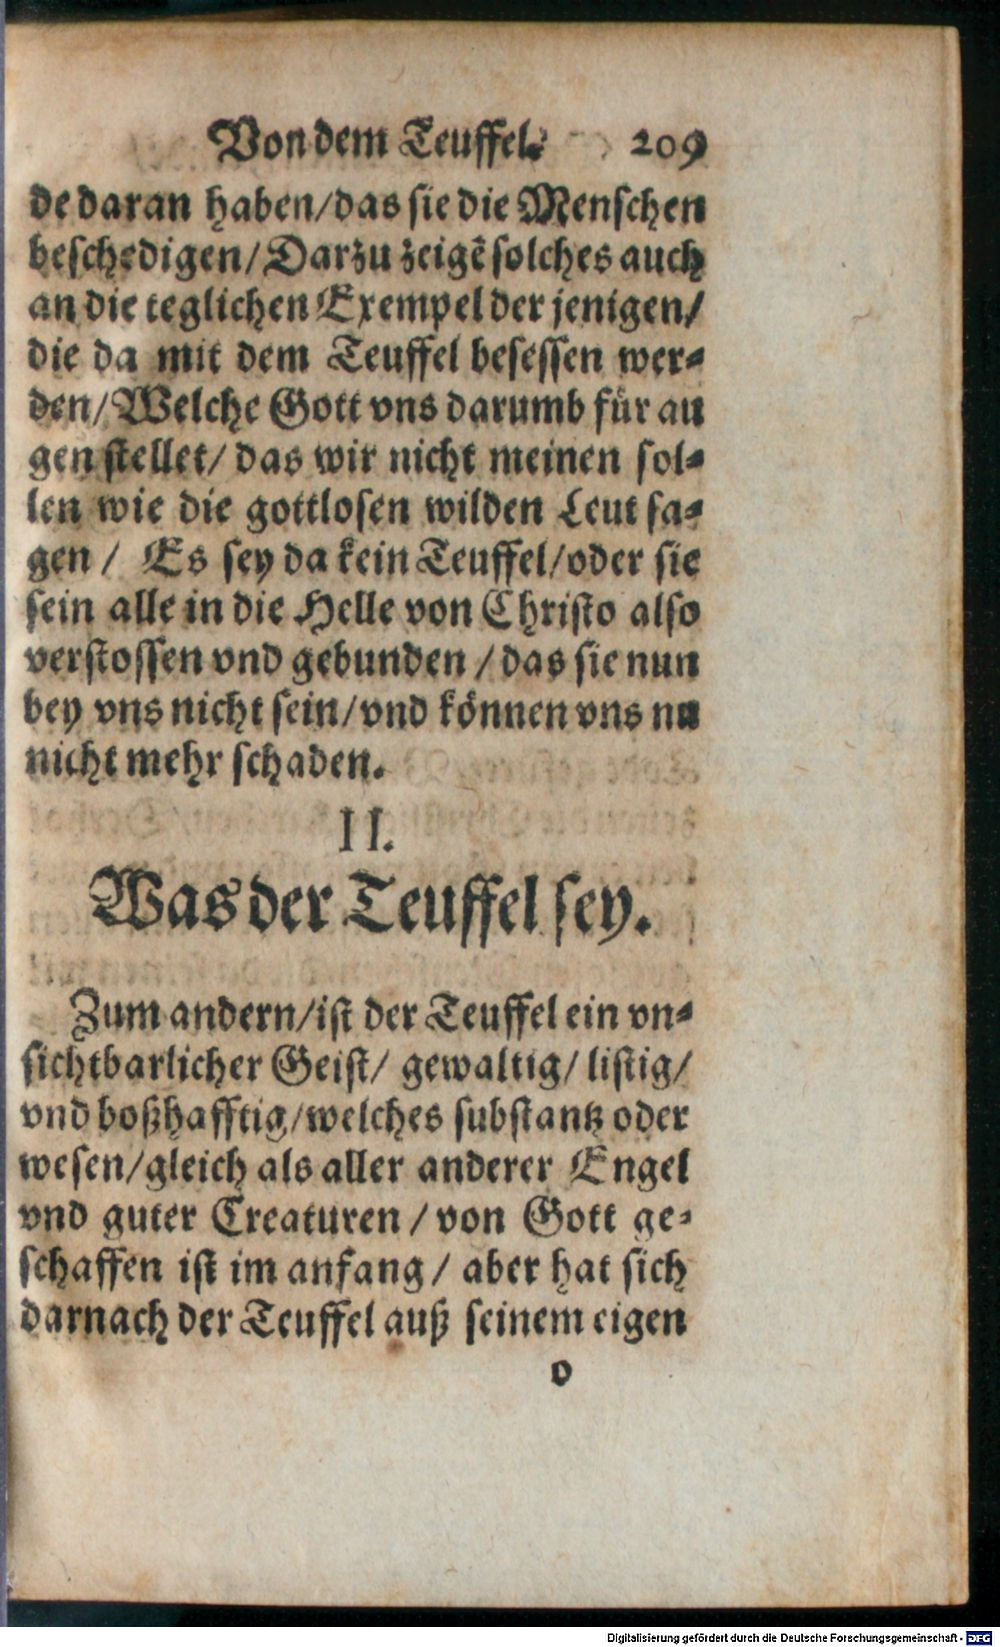 Von dem Teuffel. 209
de daran haben/das sie die Menschen
beschedigen/Darzu zeigẽ solches auch
an die teglichen Exempel der jenigen/
die da mit dem Teuffel besessen wer-
den/Welche Gott vns darumb für au
gen stellet/ das wir nicht meinen sol-
len wie die gottlosen wilden Leut sa-
gen / Es sey da kein Teuffel/oder sie
sein alle in die Helle von Christo also
verstossen vnd gebunden / das sie nun
bey vns nicht sein/vnd können vns nu
nicht mehr schaden.
II.
Was der Teuffel sey.
Zum andern/ist der Teuffel ein vn-
sichtbarlicher Geist/ gewaltig/ listig/
vnd boßhafftig/welches substantz oder
wesen/gleich als aller anderer Engel
vnd guter Creaturen / von Gott ge-
schaffen ist im anfang / aber hat sich
darnach der Teuffel auß seinem eigen
o
Digitalisierung gefördert durch die Deutsche Forschungsgemeinschaft - DFG